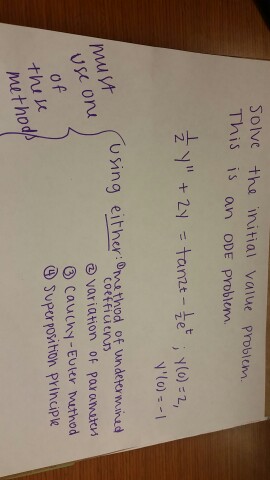 Solve the initial value problem.
This is an ODE problem
½ y" + 2y = tan2t - ½eᵗ ; y(0) = 2,
y'(0) = -1
must
use one
of
these
methods
using either: ① method of undetermined
coefficients
② variation of parameters
③ Cauchy-Euler method
④ Superposition principle